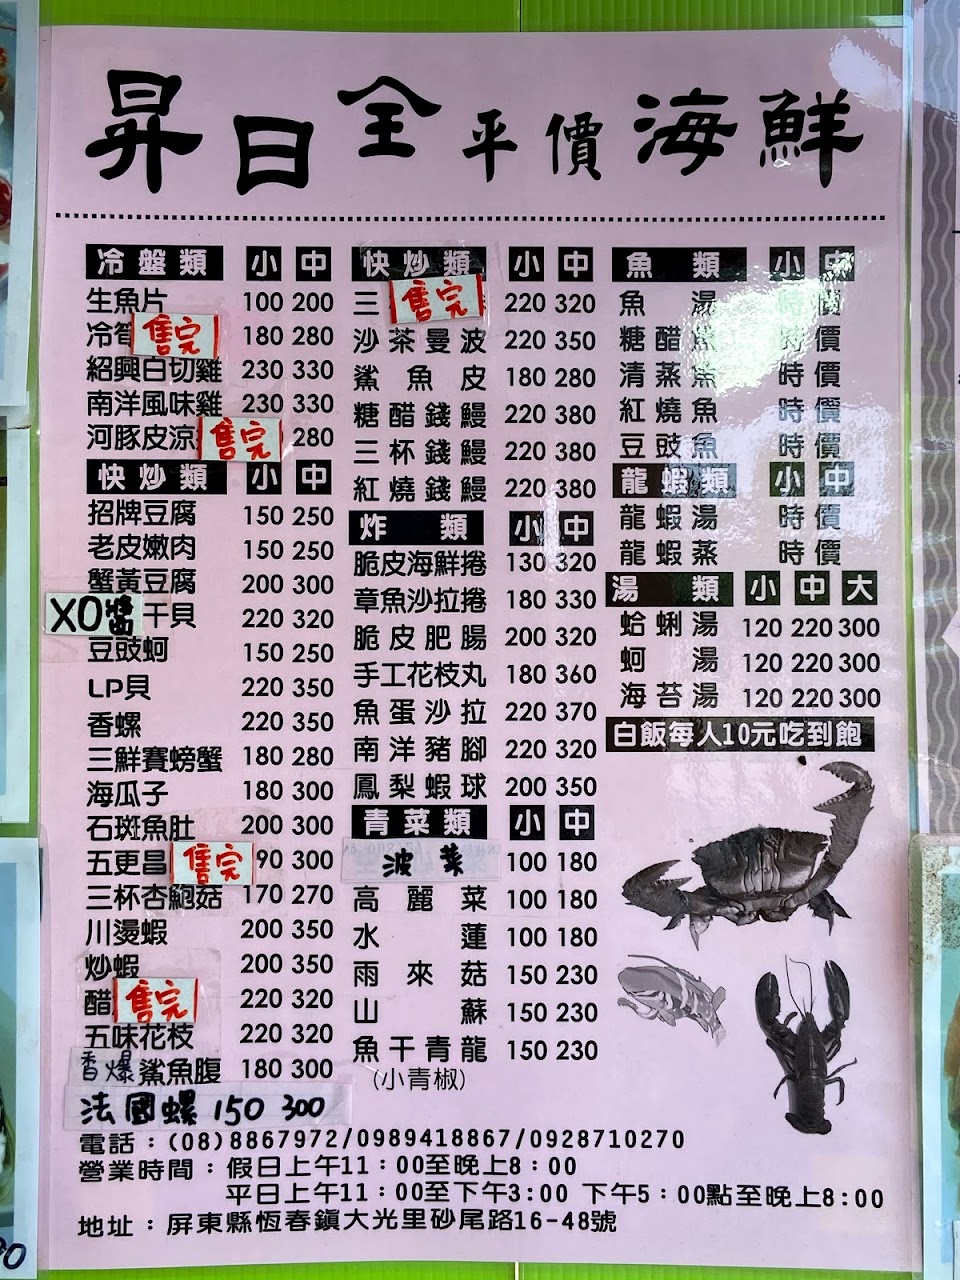 昇日全平價海鮮
冷盤類 小 中
生魚片 100 200
冷筍 售完 180 280
紹興白切雞 230 330
南洋風味雞 230 330
河豚皮涼 售完 280
快炒類 小 中
招牌豆腐 150 250
老皮嫩肉 150 250
蟹黃豆腐 200 300
XO醬干貝 220 320
豆豉蚵 150 250
LP貝 220 350
香螺 220 350
三鮮賽螃蟹 180 280
海瓜子 180 300
石斑魚肚 200 300
五更昌 售完 90 300
三杯杏鮑菇 170 270
川燙蝦 200 350
炒蝦 200 350
醋 售完 220 320
五味花枝 220 320
香爆鯊魚腹 180 300
法國螺 150 300
快炒類 小 中
三 售完 220 320
沙茶曼波 220 350
鯊魚皮 180 280
糖醋錢鰻 220 380
三杯錢鰻 220 380
紅燒錢鰻 220 380
炸類 小 中
脆皮海鮮捲 130 320
章魚沙拉捲 180 330
脆皮肥腸 200 320
手工花枝丸 180 360
魚蛋沙拉 220 370
南洋豬腳 220 320
鳳梨蝦球 200 350
青菜類 小 中
波菜 100 180
高麗菜 100 180
水蓮 100 180
雨來菇 150 230
山蘇 150 230
魚干青龍 150 230
(小青椒)
魚類 小 中
魚湯 時價
糖醋魚 時價
清蒸魚 時價
紅燒魚 時價
豆豉魚 時價
龍蝦類 小 中
龍蝦湯 時價
龍蝦蒸 時價
湯類 小 中 大
蛤蜊湯 120 220 300
蚵湯 120 220 300
海苔湯 120 220 300
白飯每人10元吃到飽
電話：(08)8867972/0989418867/0928710270
營業時間：假日上午11：00至晚上8：00
平日上午11：00至下午3:00 下午5：00點至晚上8:00
地址：屏東縣恆春鎮大光里砂尾路16-48號